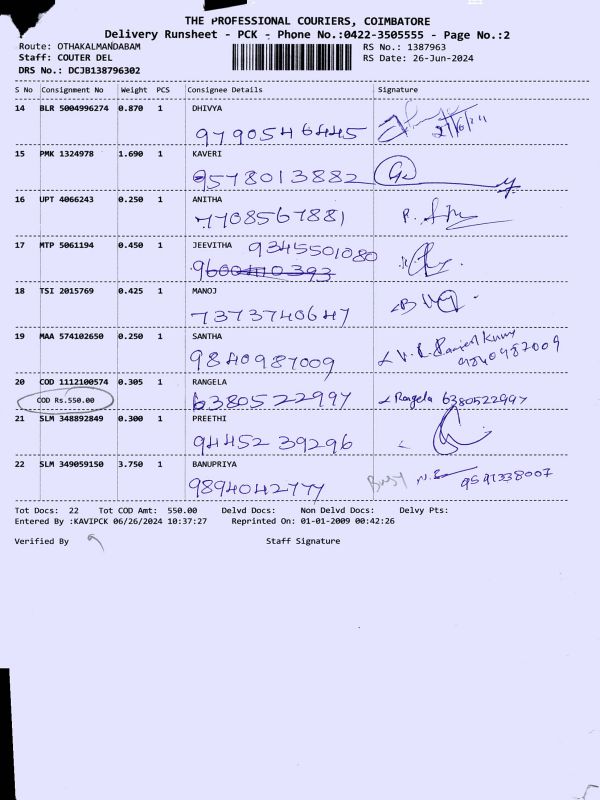 THE PROFESSIONAL COURIERS, COIMBATORE
Delivery Runsheet - PCK - Phone No.:0422-3505555 - Page No.:2
Route: OTHAKALMANDABAM RS No.: 1387963
Staff: COUTER DEL RS Date: 26-Jun-2024
DRS No.: DCJB138796302
S No Consignment No Weight PCS Consignee Details Signature
14 BLR 5004996274 0.870 1 DHIVYA
9790546445 27/6/24
15 PMK 1324978 1.690 1 KAVERI
9578013882
16 UPT 4066243 0.250 1 ANITHA
7708567881
17 MTP 5061194 0.450 1 JEEVITHA 9345501080
9600410393
18 TSI 2015769 0.425 1 MANOJ
7373740647
19 MAA 574102650 0.250 1 SANTHA
9840987009 9840987009
20 COD 1112100574 0.305 1 RANGELA
COD Rs.550.00 6380522997 Rangela 6380522997
21 SLM 348892849 0.300 1 PREETHI
94452 39296
22 SLM 349059150 3.750 1 BANUPRIYA
9894042777 Busy 9591338007
Tot Docs: 22 Tot COD Amt: 550.00 Delvd Docs: Non Delvd Docs: Delvy Pts:
Entered By :KAVIPCK 06/26/2024 10:37:27 Reprinted On: 01-01-2009 00:42:26
Verified By Staff Signature